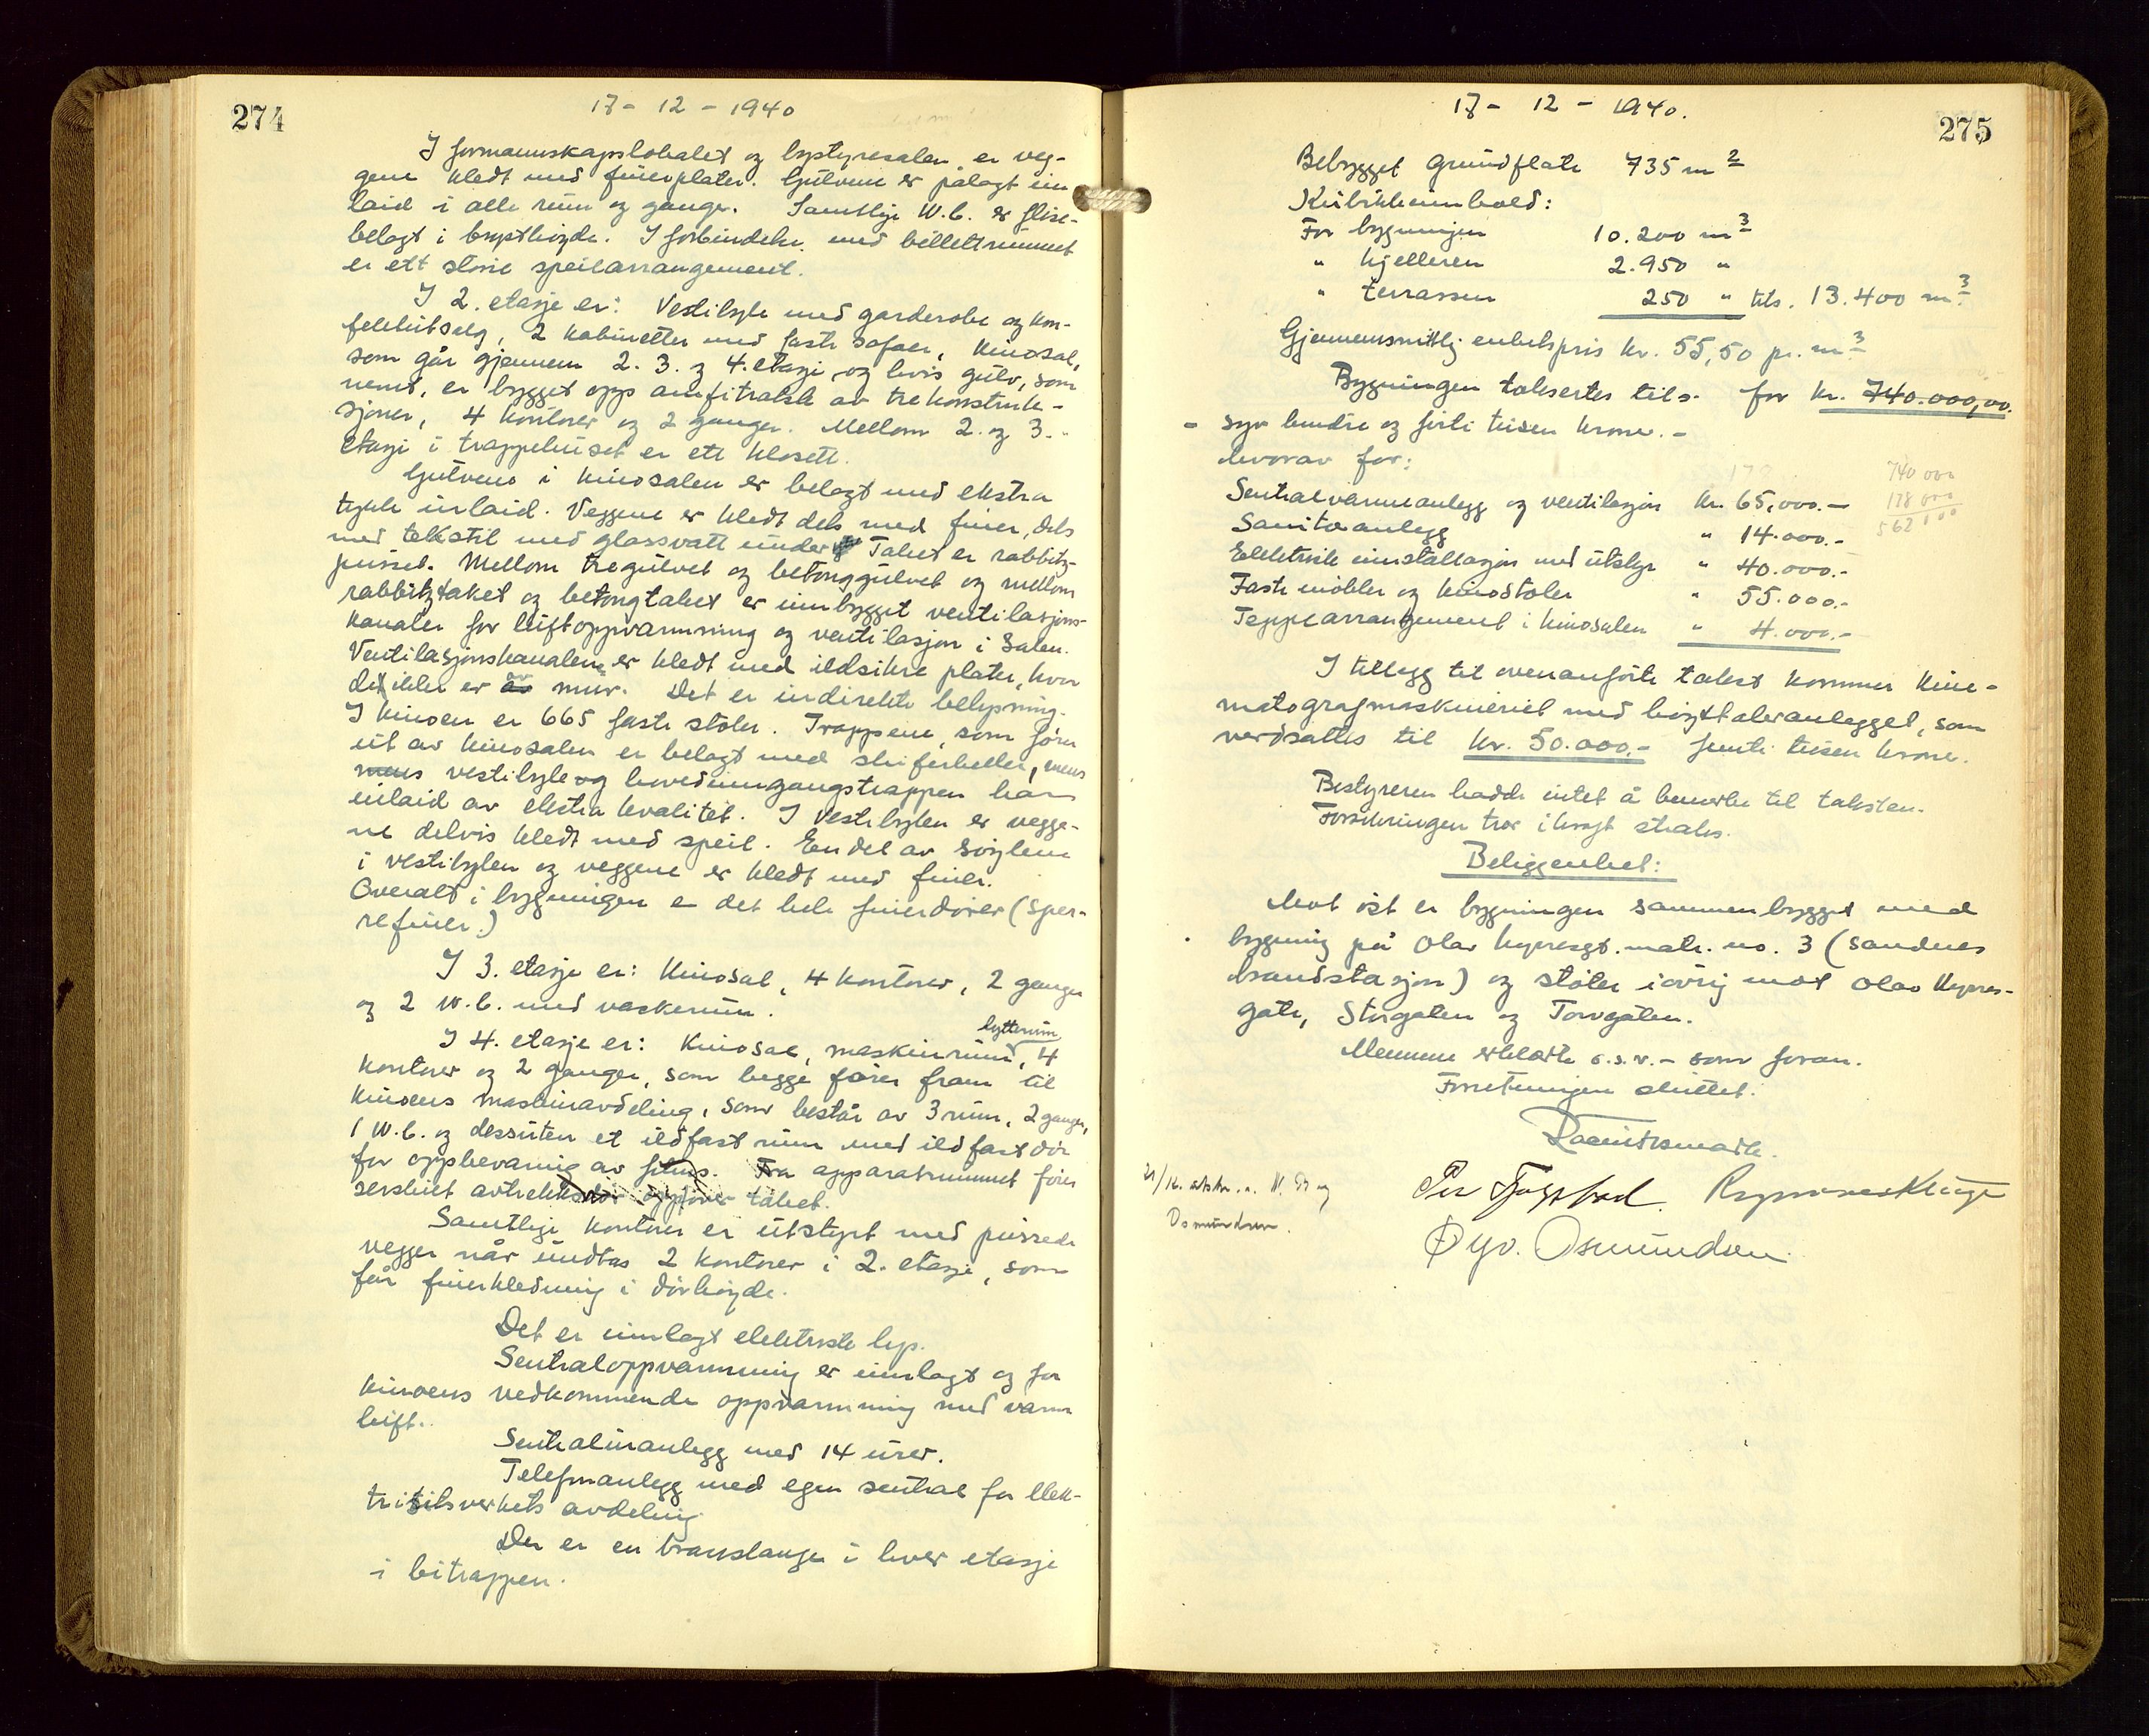 274
17 - 12 - 1940
I formannskapslokalet og bystyresalen er veg-
gene kledt med finerplater. Gulvene er pålagt inn
laid i alle rum og ganger. Samtlige W.C. er flise-
belagt i brysthöyde. I forbindelse med billettrummet
er ett större speilarrangement.
I 2. etasje er: Vestibyle med garderobe og kon-
fektutsalg, 2 kabinetter med faste sofaer, kinosal,
som går gjennem 2. 3. og 4. etasje og hvis gulv, som
nemt, er bygget opp amfitralsk av trekonstruk-
sjoner, 4 kontorer og 2 ganger. Mellom 2. og 3.
etasje i trappehuset er ett klosett.
Gulvene i kinosalen er belagt med ekstra
tykk inlaid. Veggene er kledt dels med finer, dels
med tekstil med glassvatt under. Taket er rabbitz-
pusset. Mellom tregulvet og betonggulvet og mellom
rabbitztaket og betongtaket er innbygget ventilasjons-
kanaler for luftoppvarmning og ventilasjon i salen.
Ventilasjonskanalene er kledt med ildsikre plater, hvor
det ikke er av mur. Det er indirekte belysning.
I kinoen er 665 faste stoler. Trappene, som förer
ut av kinosalen er belagt med skiferheller, mens
mens vestibyle og hovedinngangstrappen har
inlaid av ekstra kvalitet. I vestibylen er vegge-
ne delvis kledt med speil. En del av söylene
i vestibylen og veggene er kledt med finer.
Overalt i bygningen er det hele finerdörer (sper-
refiner.)
I 3. etasje er: Kinosal, 4 kontorer, 2 ganger
og 2 W.C. med vaskerum.
lytterum
I 4. etasje er: Kinosal, maskinrum, 4
kontorer og 2 ganger, som begge förer fram til
kinoens maskinavdeling, som består av 3 rum, 2 ganger,
1 W.C. og dessuten et ildfast rum med ildfast dör
for oppbevaring av films. Fra apparatrummet förer
serskilt avtrekksrör opp över taket.
Samtlige kontorer er utstyrt med pussede
vegger når undtas 2 kontorer i 2. etasje, som
får finerkledning i dörhöyde.
Det er innlagt elektriske lys.
Sentraloppvarmning er innlagt og for
kinoens vedkommende oppvarmning med varm
luft.
Sentraluranlegg med 14 urer.
Telefonanlegg med egen sentral for elek-
trisitsverkets avdeling
Der er en brannslange i hver etasje
i bitrappen.
17 - 12 - 1940.
275
Bebygget grundflate 735 m²
Kubikkinnhold:
For bygningen 10.200 m³
" kjelleren 2.950 "
" terrassen 250 " tils. 13.400 m³
Gjennemsnittlig enhetspris kr. 55,50 pr. m³
Bygningen takseres tils. for kr. 740.000,00.
- syv hundre og förti tusen kroner. -
hvorav for:
740 000
178 000
562 000
Sentralvarmeanlegg og ventilasjon kr. 65.000.-
Sanitæranlegg " 14.000.-
Elektriske innstallasjon med utstyr " 40.000.-
Faste möbler og kinostoler " 55.000.-
Teppearrangement i kinosalen " 4.000.-
I tillegg til ovenanförte takst kommer kine-
matografmaskineriet med höyttaleranlegget, som
verdsattes til kr. 50.000.- femti tusen kroner.
Bestyreren hadde intet å bemerke til taksten.
Forsikringen trer i kraft straks.
Beliggenhet:
Mot öst er bygningen sammenbygget med
bygning på Olav Kyrresgt. matr. no. 3 (Sandnes
brandstasjon) og stöter i övrig mot Olav Kyrres-
gate, Storgaten og Torvgaten.
Mennene erklærte o.s.v. - som foran.
Forretningen sluttet.
21/12. utskr. s. N. B og
Osmundsen.
Öyv. Osmundsen